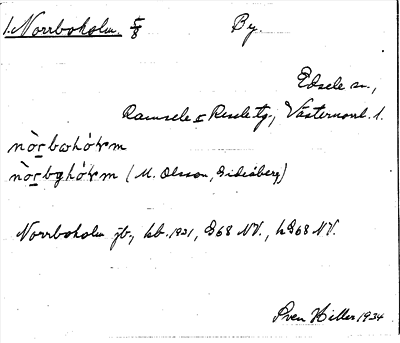 1. Norrboholm. 5/8 By.
Edsele sn.,
Ramsele o Resele tg., Västernorrl. l.
nòrbωhól̥m
nòrbghól̥m (M. Olsson, Gideåberg)
Norrboholm jb., kb. 1921, G68 NV., hG68 NV.
Sven Hiller 1934